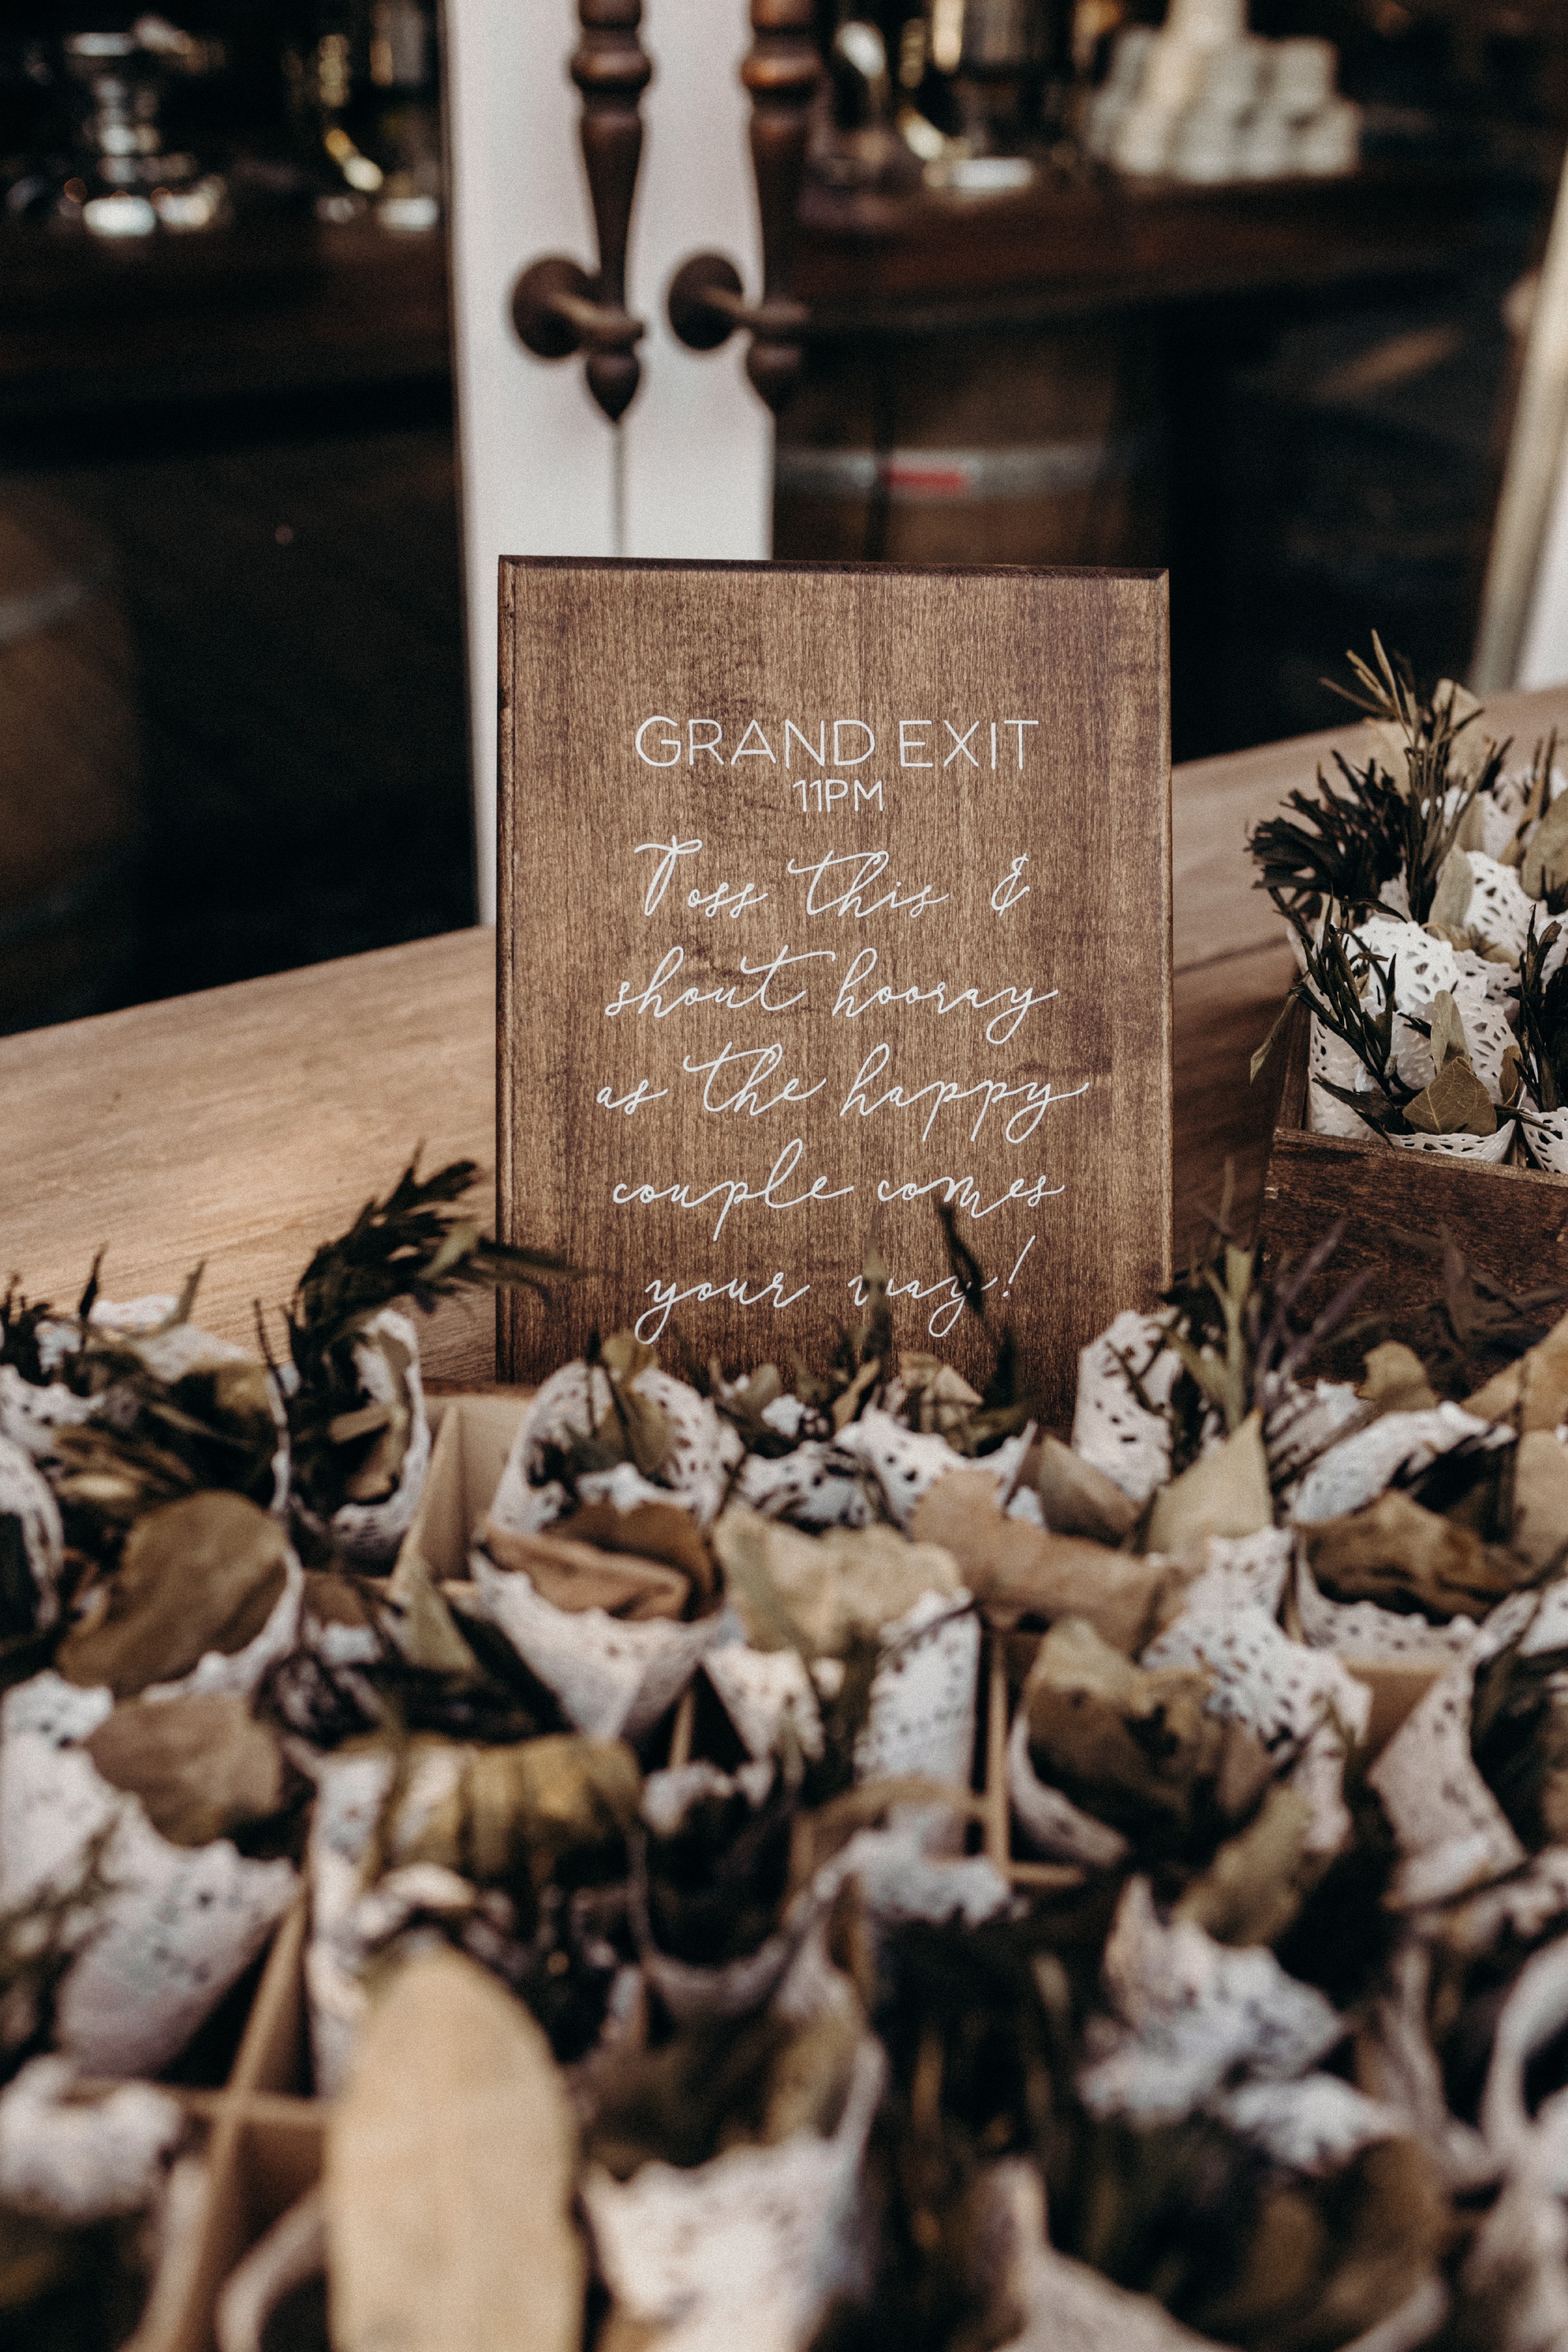 GRAND EXIT
11PM
Toss this &
shout hooray
as the happy
couple comes
your way!